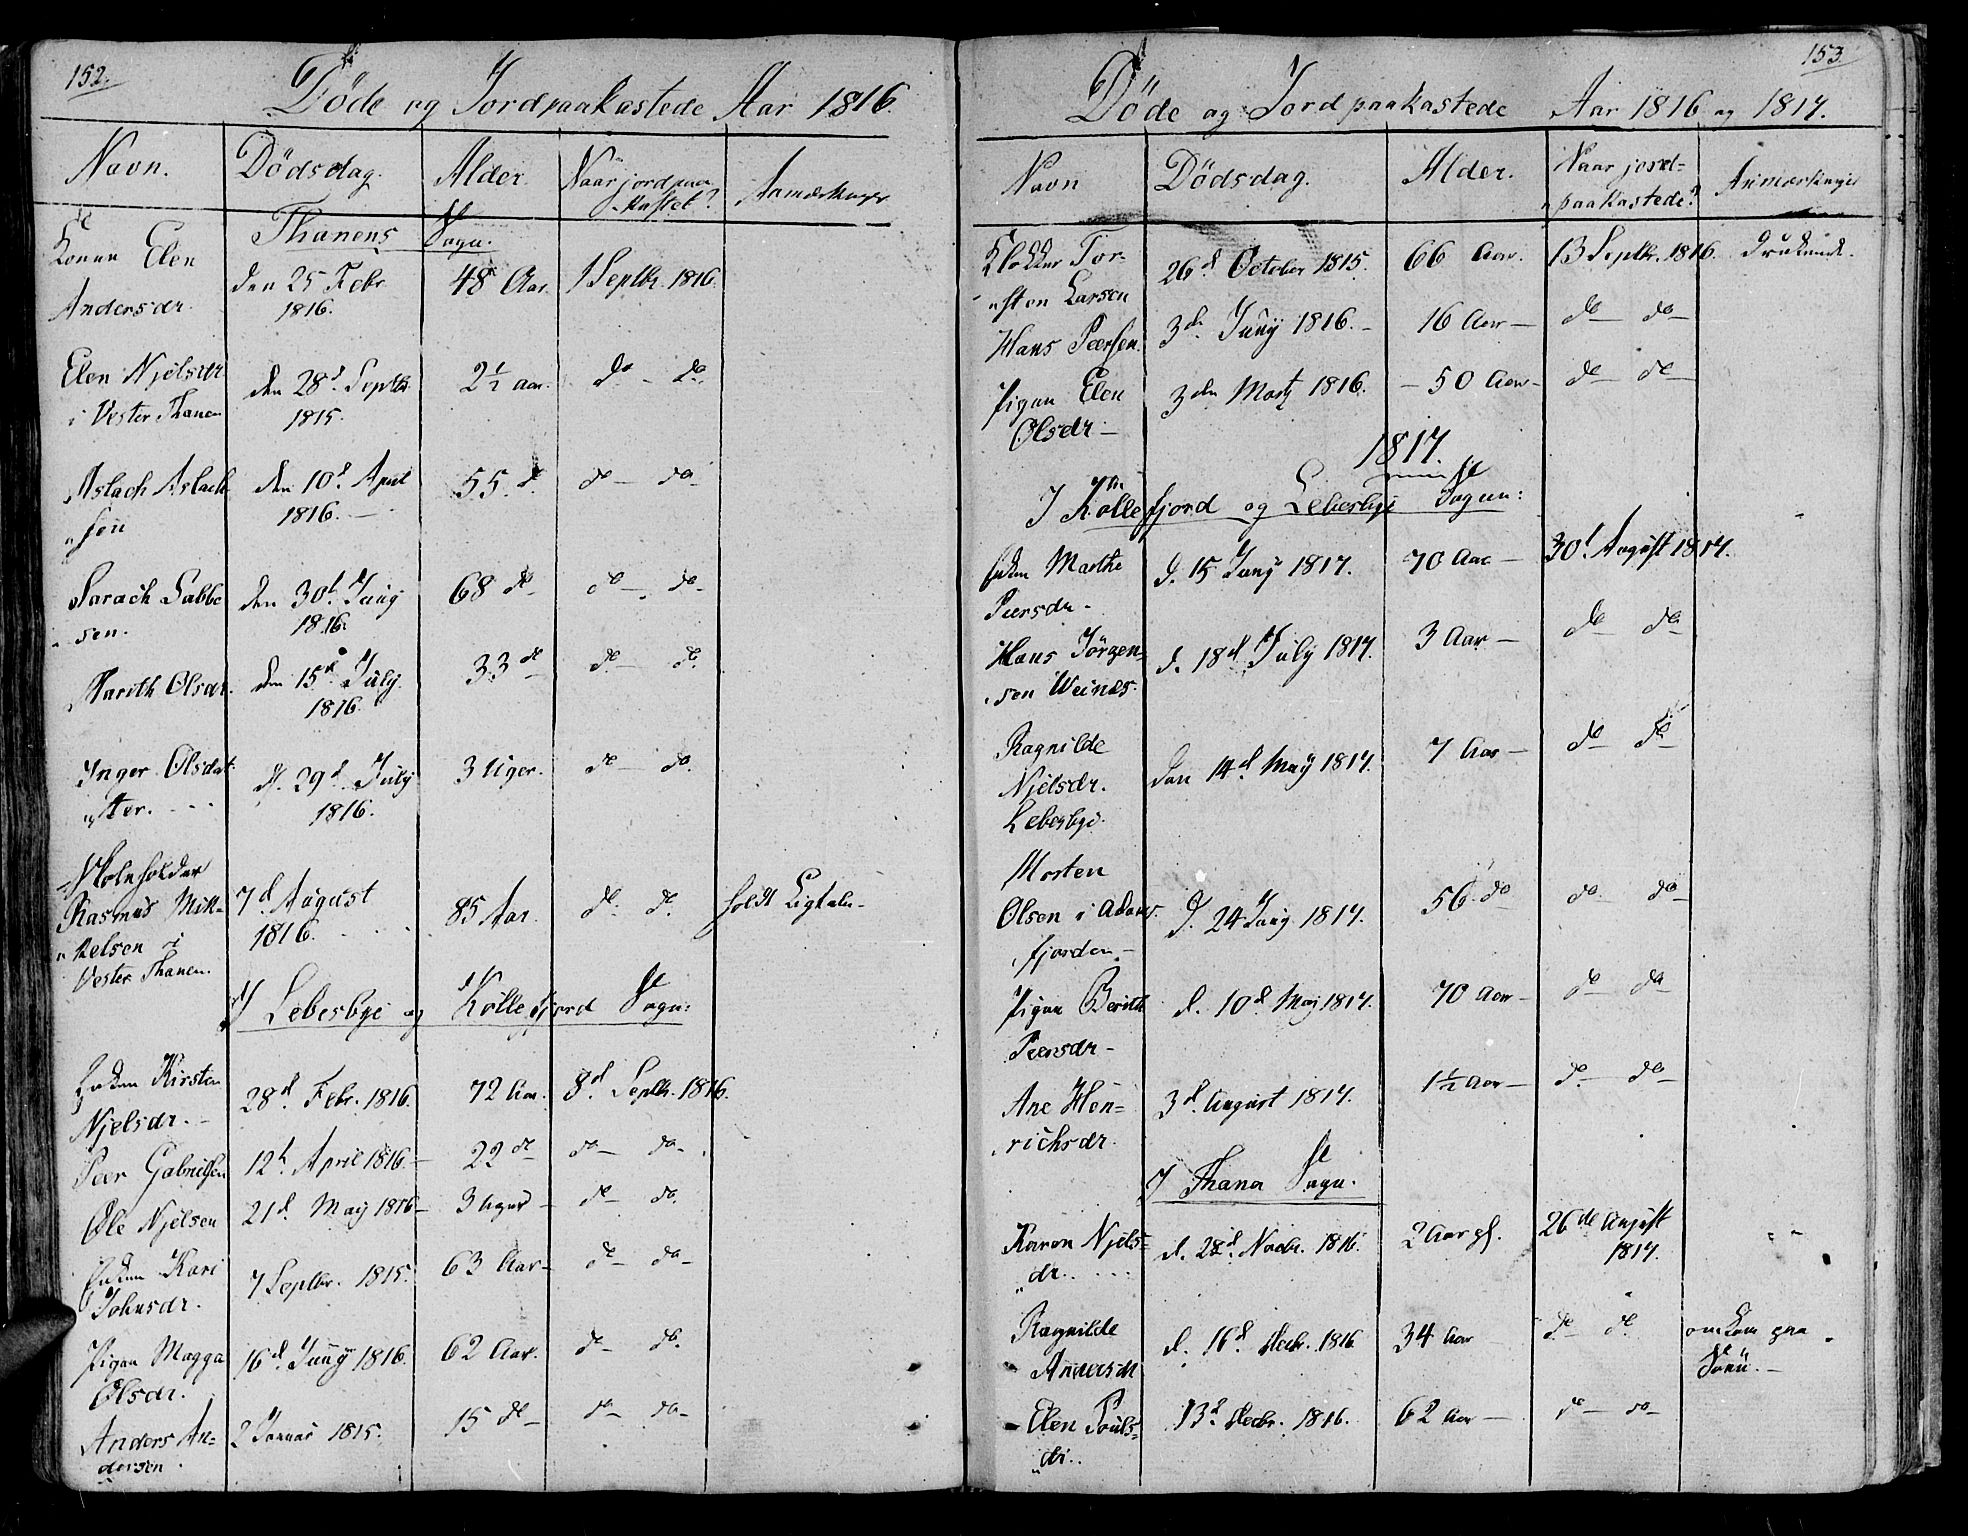 152.
Döde og Jordpaakastede Aar 1816.
Navn. Dödsdag. Alder. Naar jordpaa-
kastet? Anmærkninger
Thanens Sogn.
Konen Elen den 25 Febr 48 Aar. 1 Septbr. 1816.
Andersdr. 1816.
Elen Njelsdr den 28d. Septbr 2½ aar. do - do.
i Vester Thanen 1815.
Aslach Aslach- den 10d. April 55. do do - do -
sen 1816. -
Sarach Sabbe- den 30t. Juny 68 do - do - do -
sen. 1816.
Marith Olsdr. den 15de July 33 do do - do.
1816.
Inger Olsdat- d. 29d. July 3 Uger. do - do.
ter. 1816.
Rasmus Mik- 7d. August 85 Aar. do. do. holdt Ligtale -
kelsen i 1816.
Vester Thanen.
I Lebesbye og Kollefjord Sogn:
Enken Kirsten 28d. Febr. 1816. 72 Aar. 8d. Septbr. 1816.
Njelsdr. -
Peer Gabrielsen 12t. April 1816. - 22 do do - do -
Ole Njelsen 21d. May 1816 - 3 Uger do - do.
Enken Kari 7 Septbr. 1815. 63 Aar - do - do -
Johnsdr.
Pigen Magga 16d. Juny 1816. 62 Aar. do - do.
Olsdr.
Anders An- 2 Januar 1815. 15 do - do - do -
dersen.
153.
Döde og Jordpaakastede Aar 1816 og 1817.
Navn Dödsdag. Alder. Naar jord-
paakastede? Anmærkninger
Klokker Tor- 26d October 1815. 66 Aar. 13 Septbr. 1816. druknede.
sten Larsen
Hans Peersen 3de Juny 1816. - 16 Aar - do - do -
Pigen Elen 3den Marty 1816. - 50 Aar - do - do -
Olsdr -
1817.
I Kollefjord og Lebesbye Sogn:
Enken Marthe d. 15 Juny 1817. 70 Aar - 30t August 1817.
Peersdr -
Hans Jörgen- d. 18d July 1817. 3 Aar - do - do -
sen Weines.
Ragnilde den 14d. May 1817. 7 Aar - do - do -
Njelsdr.
Lebesbye.
Morten
Olsen i Adams- d. 24 Juny 1817. 56 do do - do -
fjorden -
Pigen Berith d. 10d May 1817. 70 Aar - do - do -
Peersdr -
Ane Hen- 3d. August 1817. 1½ Aar - do - do -
richsdr.
I Thana Sogn.
Karen Njels- d. 28d. Novbr. 1816. 2 Aar gl. 26de August
dr. 1817.
Ragnilde d. 16d Decbr. 1816 34 Aar do - do. omkom paa
Andersdr Söen. -
Elen Pouls- 13d. Decbr. 1816. 62 Aar - do - do -
dr.